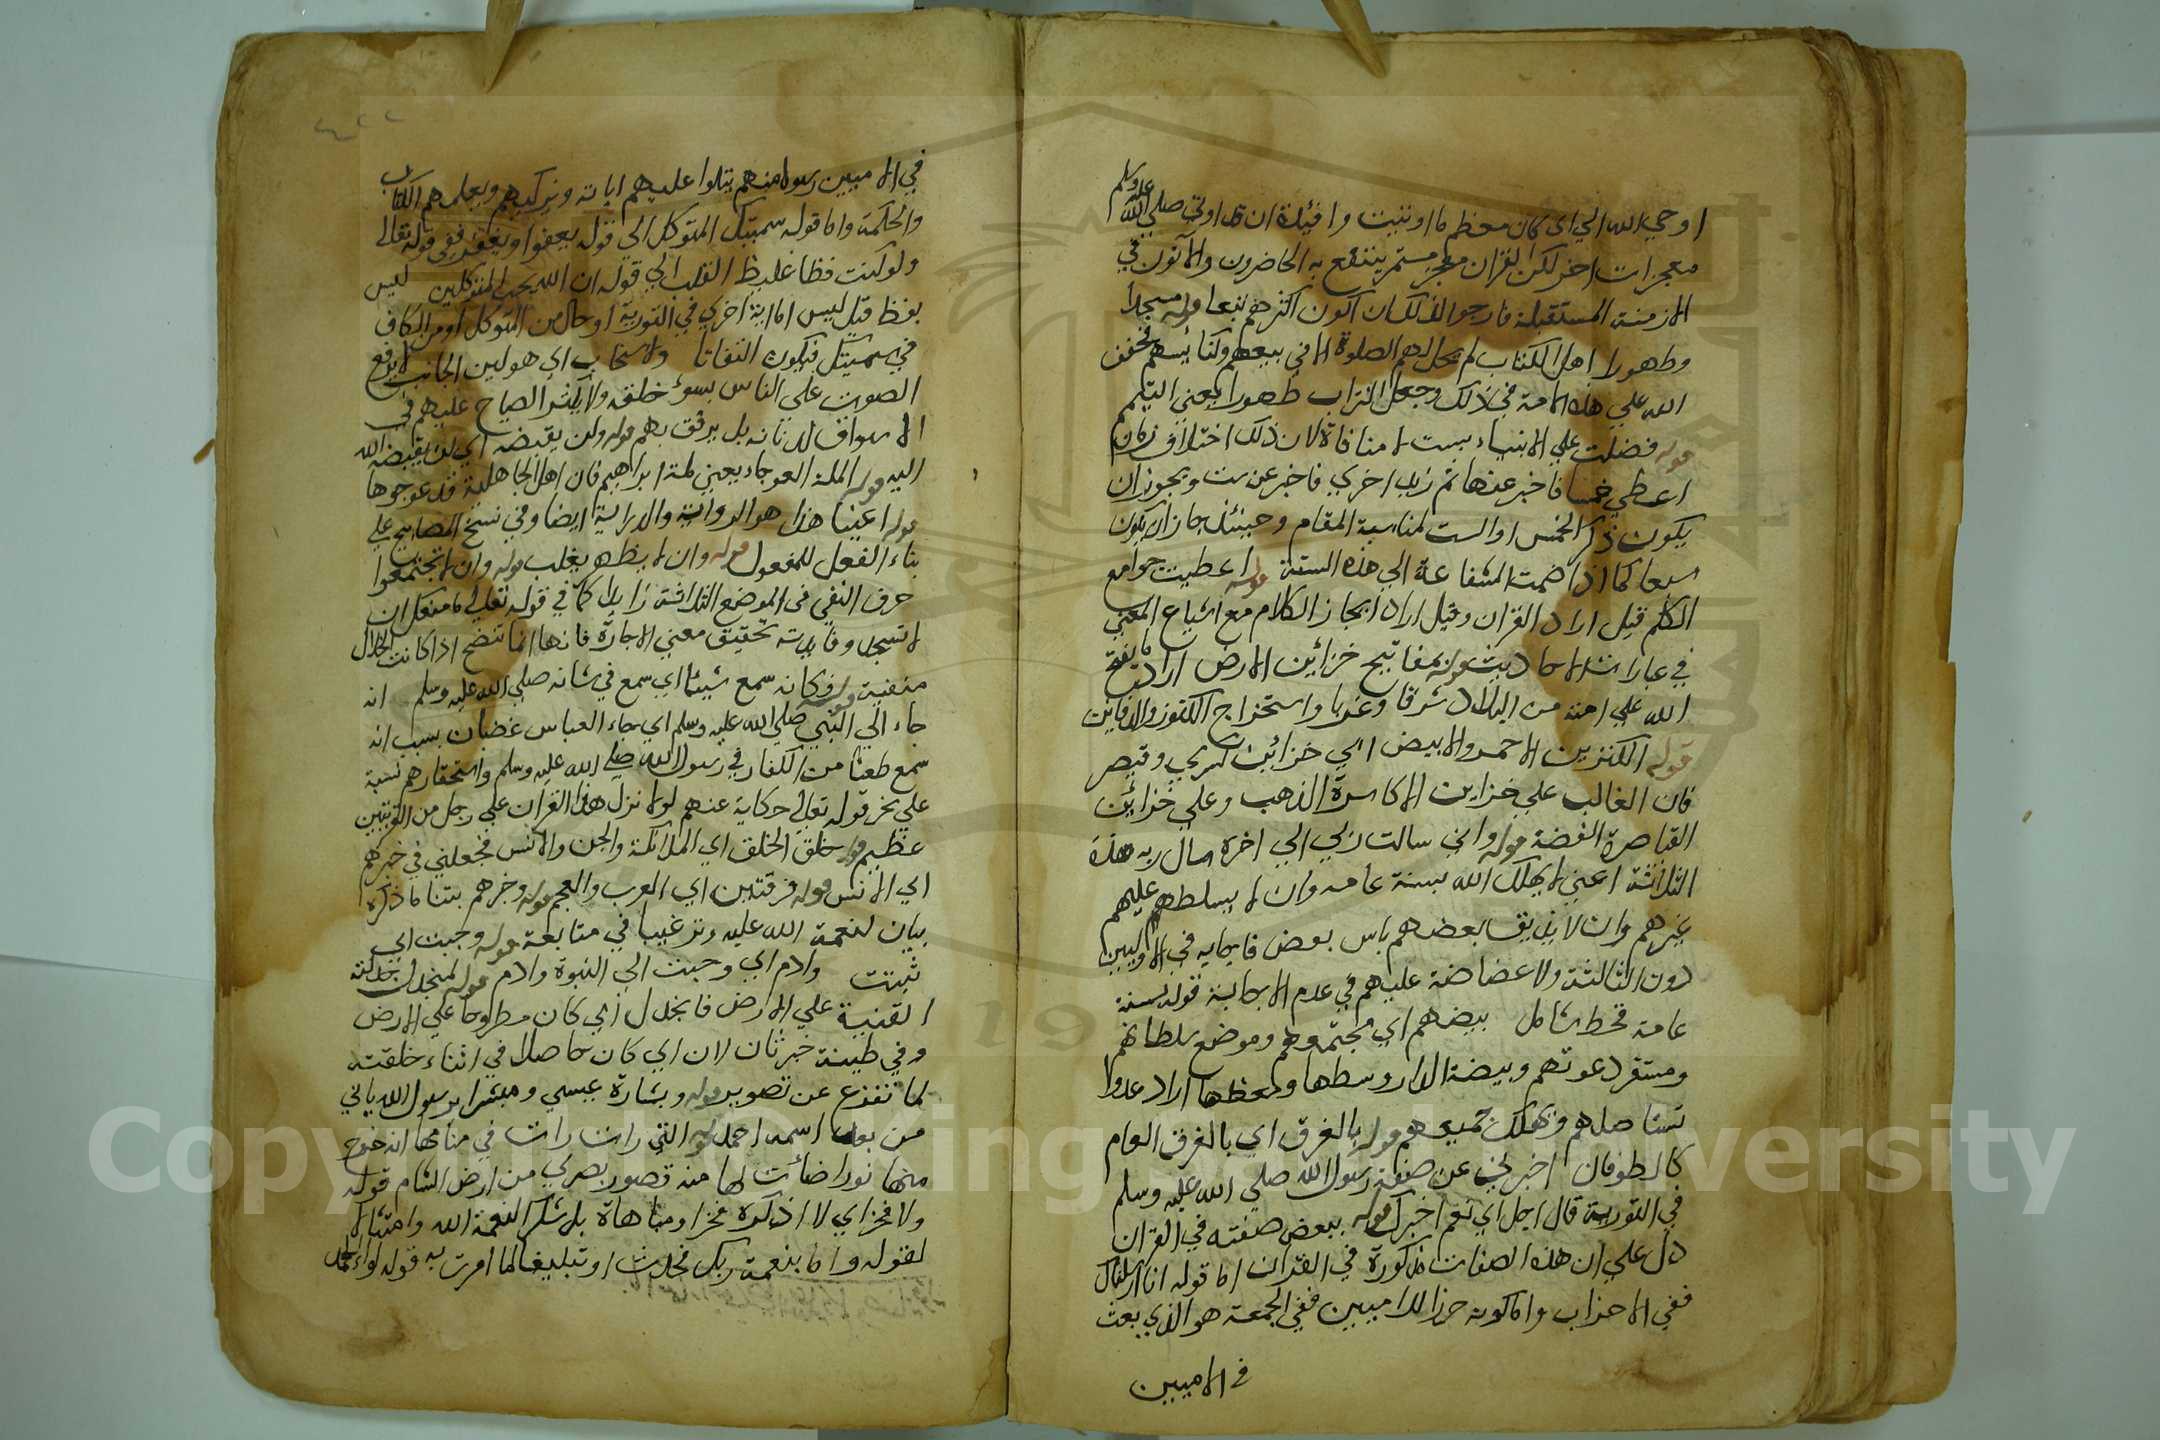 اوحي الله الي اي كان معظم ما اوتيت وافيدة ان قد اوتي صلي الله عليه وسلم
معجزات اخر لكن القران معجز مستمر ينتفع به الحاضرون والآتون في
الازمنة المستقبلة فارجوا لذلك ان اكون اكثرهم تبعا قوله مسجدا
وطهورا اهل الكتاب لم يحل لهم الصلوة الا في بيعهم وكنايسهم فخفف
الله علي هذه الامة في ذلك وجعل التراب طهورا يعني التيمم
قوله فضلت علي الانبياء بست لا منافاة لان ذلك اختلاف زمان
اعطي خمسا فاخبر عنها ثم زيد اخري فاخبر عن ست ويجوز ان
يكون ذكر الخمس او الست لمناسبة المقام وحينئذ جاز ان يكون
سبعا كما اذا ضمت الشفاعة الي هذه الستة قوله اعطيت جوامع
الكلم قيل اراد القران وقيل اراد ايجاز الكلام مع اشباع المعني
في عبارات الاحاديث قوله بمفاتيح خزائين الارض اراد ما يفتح
الله علي امته من البلاد شرقا وغربا واستخراج الكنوز والدفاين
قوله الكنزين الاحمر والابيض اي خزائن كسري وقيصر
فان الغالب علي خزاين الاكاسرة الذهب وعلي خزائن
القياصرة الفضة قوله واني سالت ربي الي اخره سال ربه هذه
الثلاثة اعني لا يهلك الله بسنة عامه وان لا يسلط عليهم
غيرهم وان لا يذيق بعضهم باس بعض فاجابه في الاوليين
دون الثالثة ولا غضاضة عليهم في عدم الاجابة قوله بسنة
عامة قحط شامل بيضهم اي مجتمعهم وموضع سلطانهم
ومستقر دعوتهم وبيضة الدار وسطها ومعظمها اراد عدوا
تستاصلهم وتهلك جميعهم قوله بالغرق اي بالغرق العام
كالطوفان اخبرني عن صفة رسول الله صلي الله عليه وسلم
في التورية قال اجل اي نعم اخبرك قوله ببعض صفته في القران
دل علي ان هذه الصفات مذكورة في القران اما قوله انا ارسلناك
ففي الاحزاب واما كونه حرزا للاميين ففي الجمعة هو الذي بعث
في الاميين
في الاميين رسولا منهم يتلوا عليهم اياته ويزكيهم ويعلمهم الكتاب
والحكمة واما قوله سميتك المتوكل الي قوله يعفوا ويغفر ففي قوله تعالي
ولو كنت فظا غليظ القلب الي قوله ان الله يحب المتوكلين ليس
بفظ قيل ليس اما اية اخري في التورية او حال من المتوكل او من الكاف
في سميتك فيكون التفاتا ولا سخاب اي هو لين الجانب لا يرفع
الصوت علي الناس بسوء خلقه ولا يكثر الصياح عليهم في
الاسواق لدنائه بل يرفق بهم قوله ولن يقبضه اي لن يقبضه الله
اليه قوله الملة العوجاء يعني ملة ابراهيم فان اهل الجاهلية قد عوجوها
قوله اعينا هذا هو الرواية والدراية ايضا وفي نسخ المصابيح علي
بناء الفعل للمفعول قوله وان لا يظهر يغلب قوله وان لا تجتمعوا
حرف النفي في الموضع الثلاثة زايد كما في قوله تعالي ما منعك ان
لا تسجد وفايدته تحقيق معني الاجارة فانها انما تتضح اذا كانت الخلال
منفية قوله فكانه سمع شيئا اي سمع في شانه صلي الله عليه وسلم انه
جاء الي النبي صلي الله عليه وسلم اي جاء العباس غضبان بسبب انه
سمع طعنا من الكفار في رسول الله صلي الله عليه وسلم واستحقارهم نسبة
علي نحو قوله تعالي حكاية عنهم لولا نزل هذا القران علي رجل من القريتين
عظيم قوله خلق الخلق اي الملائكة والجن والانس فجعلني في خيركم
اي الانس قوله فرقتين اي العرب والعجم قوله وخيرهم بيتا ما ذكره
بيان لنعمة الله عليه وترغيبا في متابعة قوله وجبت اي
ثبتت وادم اي وجبت الي النبوة وادم قوله لمنجدل جدلته
القنية علي الارض فانجدل اي كان مطروحا علي الارض
وفي طينة خبر ثان لان اي كان حاصلا في اثناء خلقته
لما تفزع عن تصوير قوله وبشارة عيسي ومبشرا برسول الله ياتي
من بعد اسمه احمد قوله التي رات رات في منامها انه خرج
منها نورا ضائت لها منه قصور بصري من ارض الشام قوله
ولا فخر اي لا اذكره فخرا ومباهاة بل شكرا لنعمة الله وامتثالا
لقوله واما بنعمة ربك فحدث او تبليغا لما امرت به قوله لواء الحمد
Copyright © King Saud University